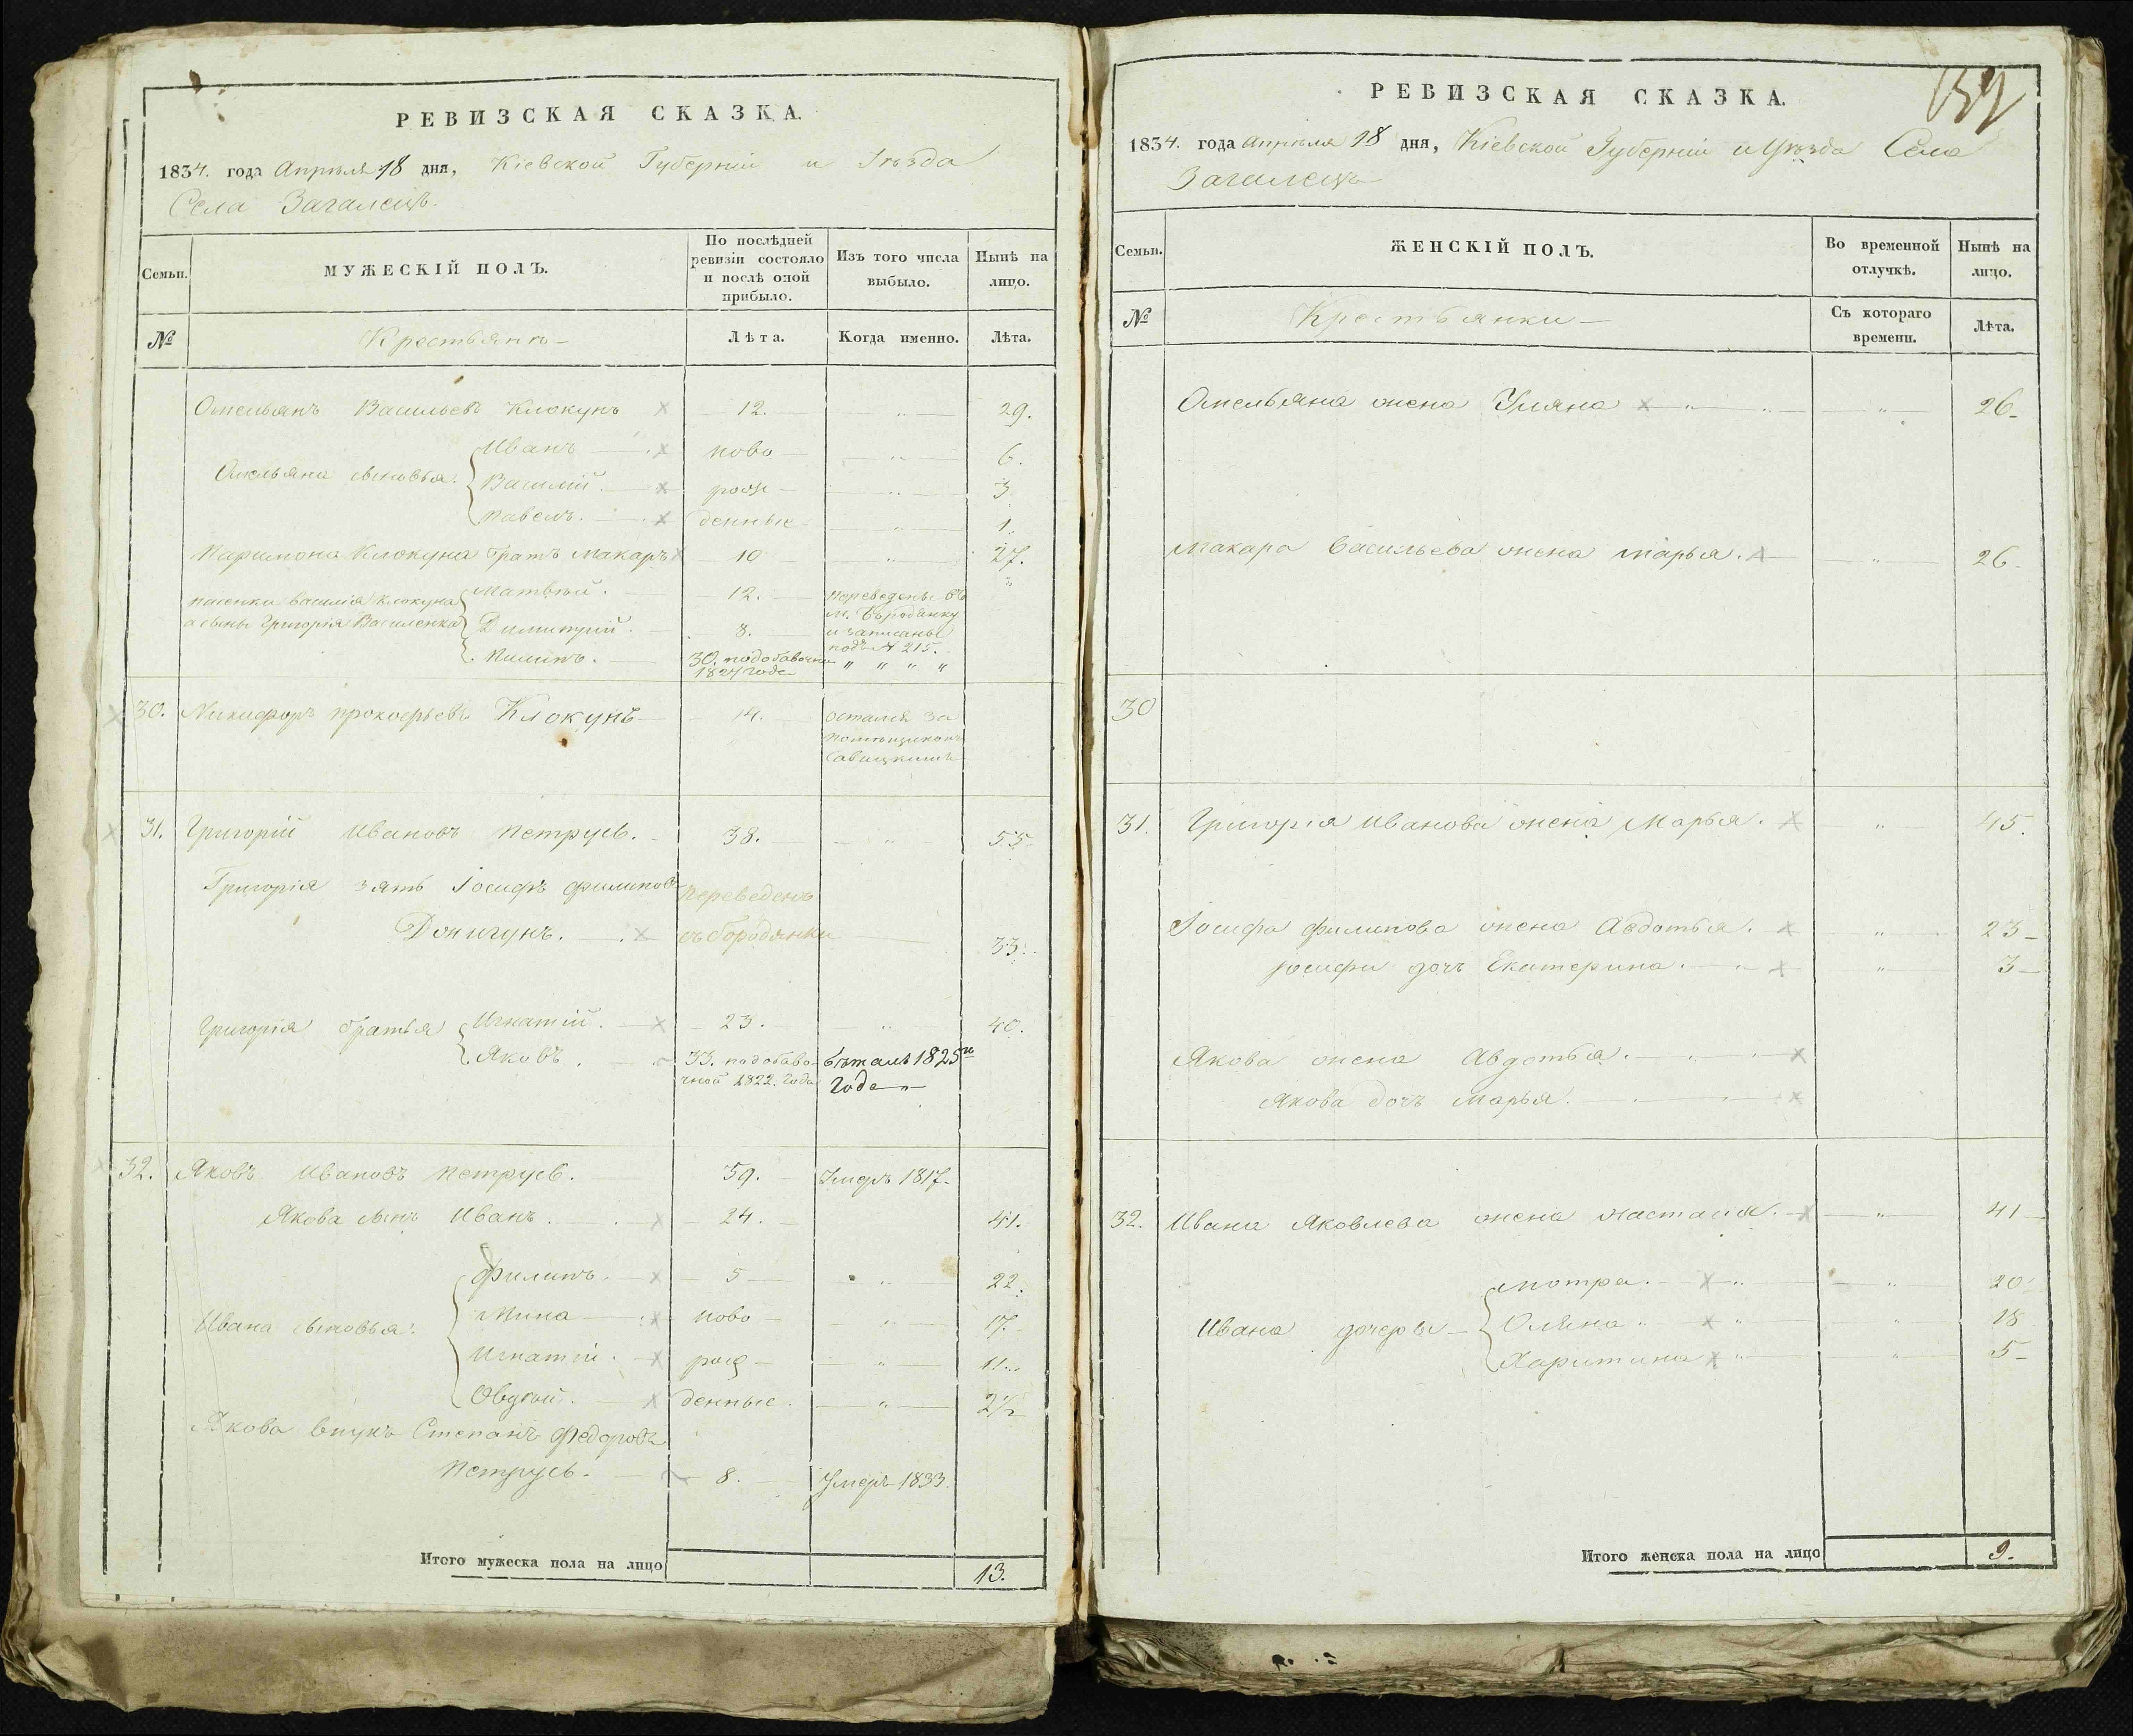 РЕВИЗСКАЯ СКАЗКА.
1834. года Апрѣля 18 дня, Кіевской Губерніи и Уѣзда
Села Загалецъ.
Семьи.
МУЖЕСКІЙ ПОЛЪ.
По послѣдней
ревизіи состояло
и послѣ оной
прибыло.
Изъ того числа
выбыло.
Нынѣ на
лицо.
№
Крестьянъ
Лѣта.
Когда именно.
Лѣта.
Омельянъ Васильевъ Клокунъ 12. 29.
Иванъ ново 6.
Омельяна сыновья: Василій. рож 3
Павелъ. денные 1.
Паримона Клокуна братъ Макаръ 10 27.
Матвѣй. 12. переведены въ
пасенки Василія Клокуна м. Бородянку
а сыны Григорія Василенка Димитрій. 8. и записаны
подъ № 215.
Пилипъ. 30. подобавочно
1827 года
30. Никифоръ Прокофьевъ Клокунъ 14. остался за
помѣщикомъ
Савицкимъ
31. Григорій Ивановъ Петрусь. 38. 55
Григорія зять Іосифъ Филиповъ переведенъ
съ Бородянки 33.
Григорія братья Игнатій. 23. 40.
Яковъ. 33. подобаво- бѣжалъ 1825го
чной 1822. года Года
32. Яковъ Ивановъ Петрусь. 59. Умеръ 1817.
Якова сынъ Иванъ. 24. 41.
Филипъ. 5 22.
Ивана сыновья: Мина ново 17.
Игнатій. рож 11.
Овдѣй. денные. 2 1/2
Якова внукъ Степанъ Федоровъ
Петрусь. 8. Умеръ 1833.
Итого мужеска пола на лицо 13.
РЕВИЗСКАЯ СКАЗКА.
1834. года Апрѣля 18 дня, Кіевской Губерніи и Уѣзда Села
Загалецъ
Семьи.
ЖЕНСКІЙ ПОЛЪ.
Во временной
отлучкѣ.
Нынѣ на
лицо.
№
Крестьянки
Съ котораго
времени.
Лѣта.
Омельяна жена Уляна 26
Макара Васильева жена Марья. 26
30
31. Григорія Иванова жена Марья. 45.
Іосифа Филипова жена Авдотья. 23
Іосифа дочь Екатерина. 3
Якова жена Авдотья.
Якова дочь Марья.
32. Ивана Яковлева жена Настасія. 41
Мотря. 20
Ивана дочеры Оляна. 18
Харитина 5
Итого женска пола на лицо 9.